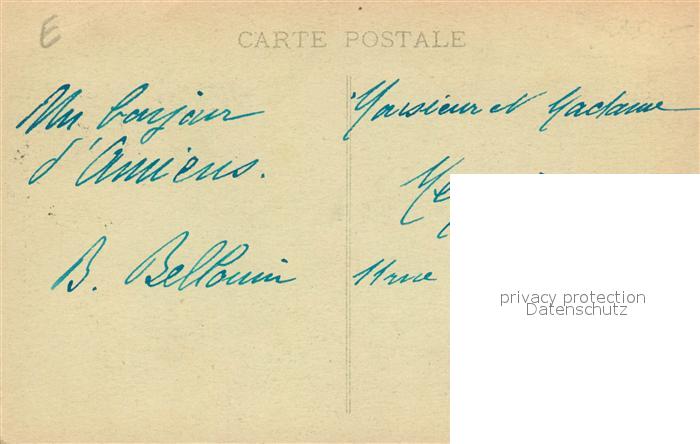 E
CARTE POSTALE
Un bonjour
d'Amiens.
B. Bellouin
Monsieur et Madame
11 rue
privacy protection
Datenschutz